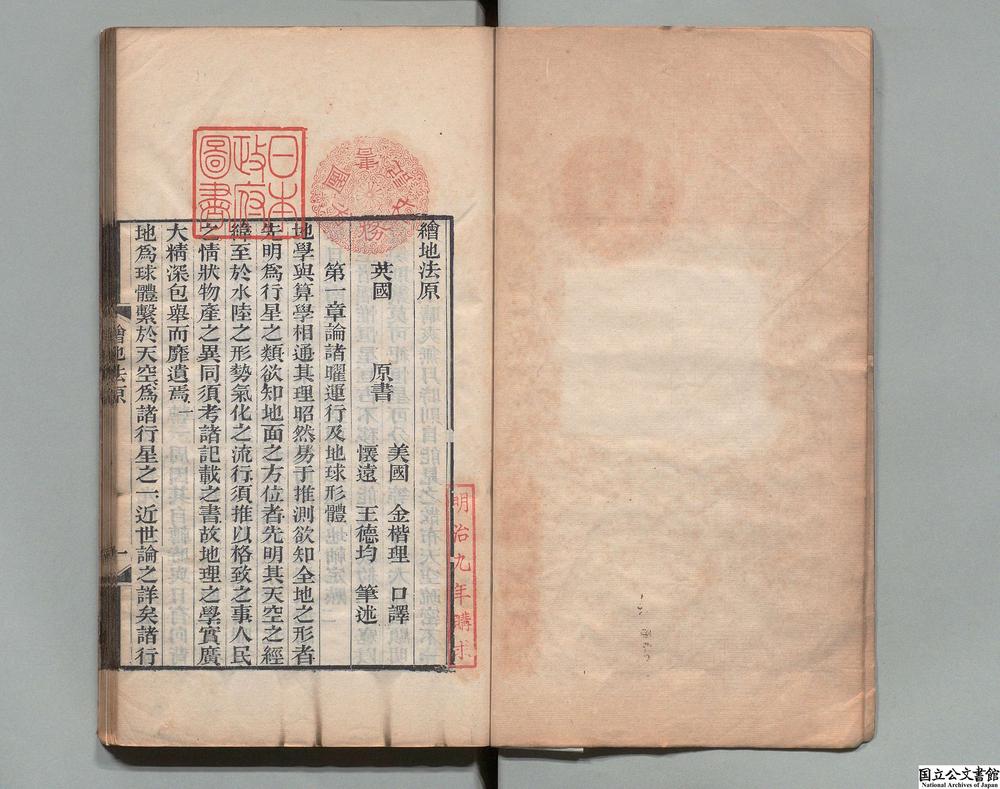 繪地法原
英國　原書　美國　金楷理　口譯
懷遠　王德均　筆述
第一章論諸曜運行及地球形體
地學與算學相通其理昭然易于推測欲知全地之形者
先明爲行星之類欲知地面之方位者先明其天空之經
緯至於水陸之形勢氣化之流行須推以格致之事人民
之情狀物產之異同須考諸記載之書故地理之學實廣
大精深包舉而靡遺焉
地爲球體繫於天空爲諸行星之一近世論之詳矣諸行
繪地法原
一
日本
政府
圖書
明治九年購求
国立公文書館
National Archives of Japan